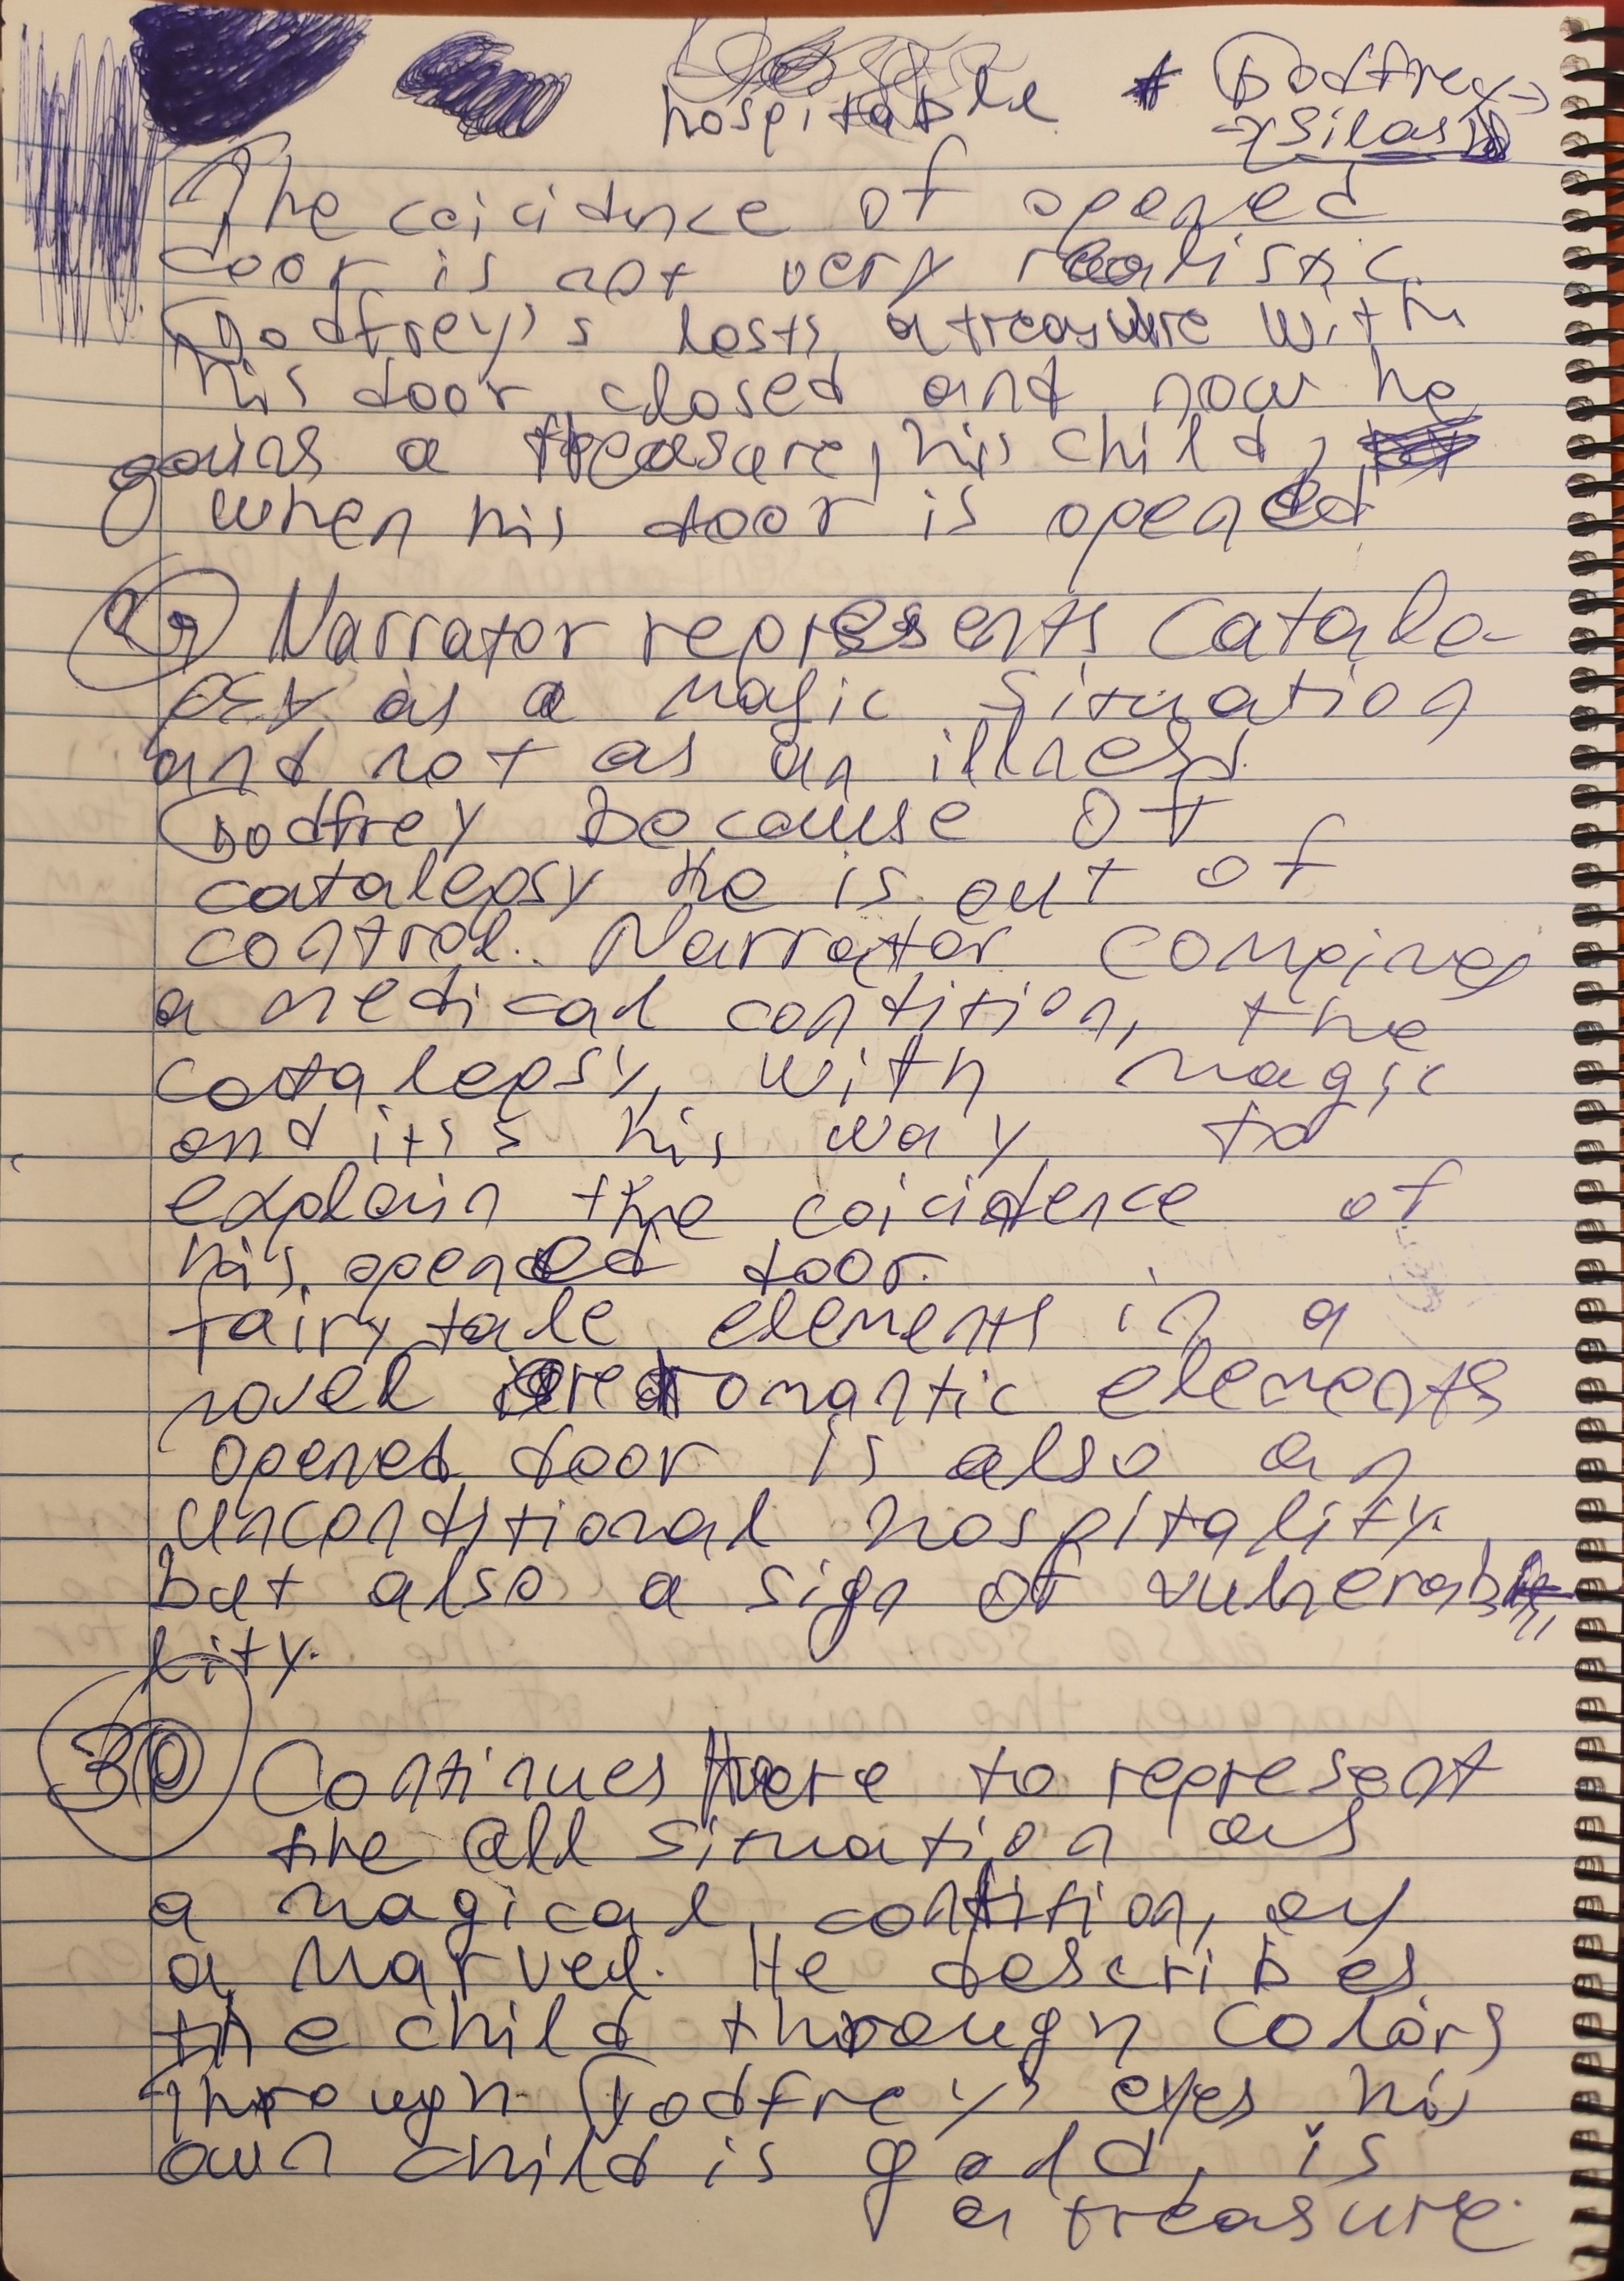 hospitable * Godfrey →
→ Silas
The coicidence of opened
door is not very realistic.
Godfrey's losts a treasure with
his door closed and now he
gains a treasure, his child,
when his door is opened
Narrator represents catale-
psy as a magic situation
and not as an illness.
Godfrey because of
catalepsy he is out of
control. Narrator compines
a medical contition, the
catalepsy, with magic
and it's his way to
explain the coicidence of
his opened door.
fairytale elements in a
novel are romantic elements
opened door is also an
unconditional hospitality.
but also a sign of vulnerabi
lity.
30 Continues here to represent
the all situation as
a magical contition, as
a marvel. He describes
the child through colors
Through Godfrey's eyes his
own child is gold, is
a treasure.